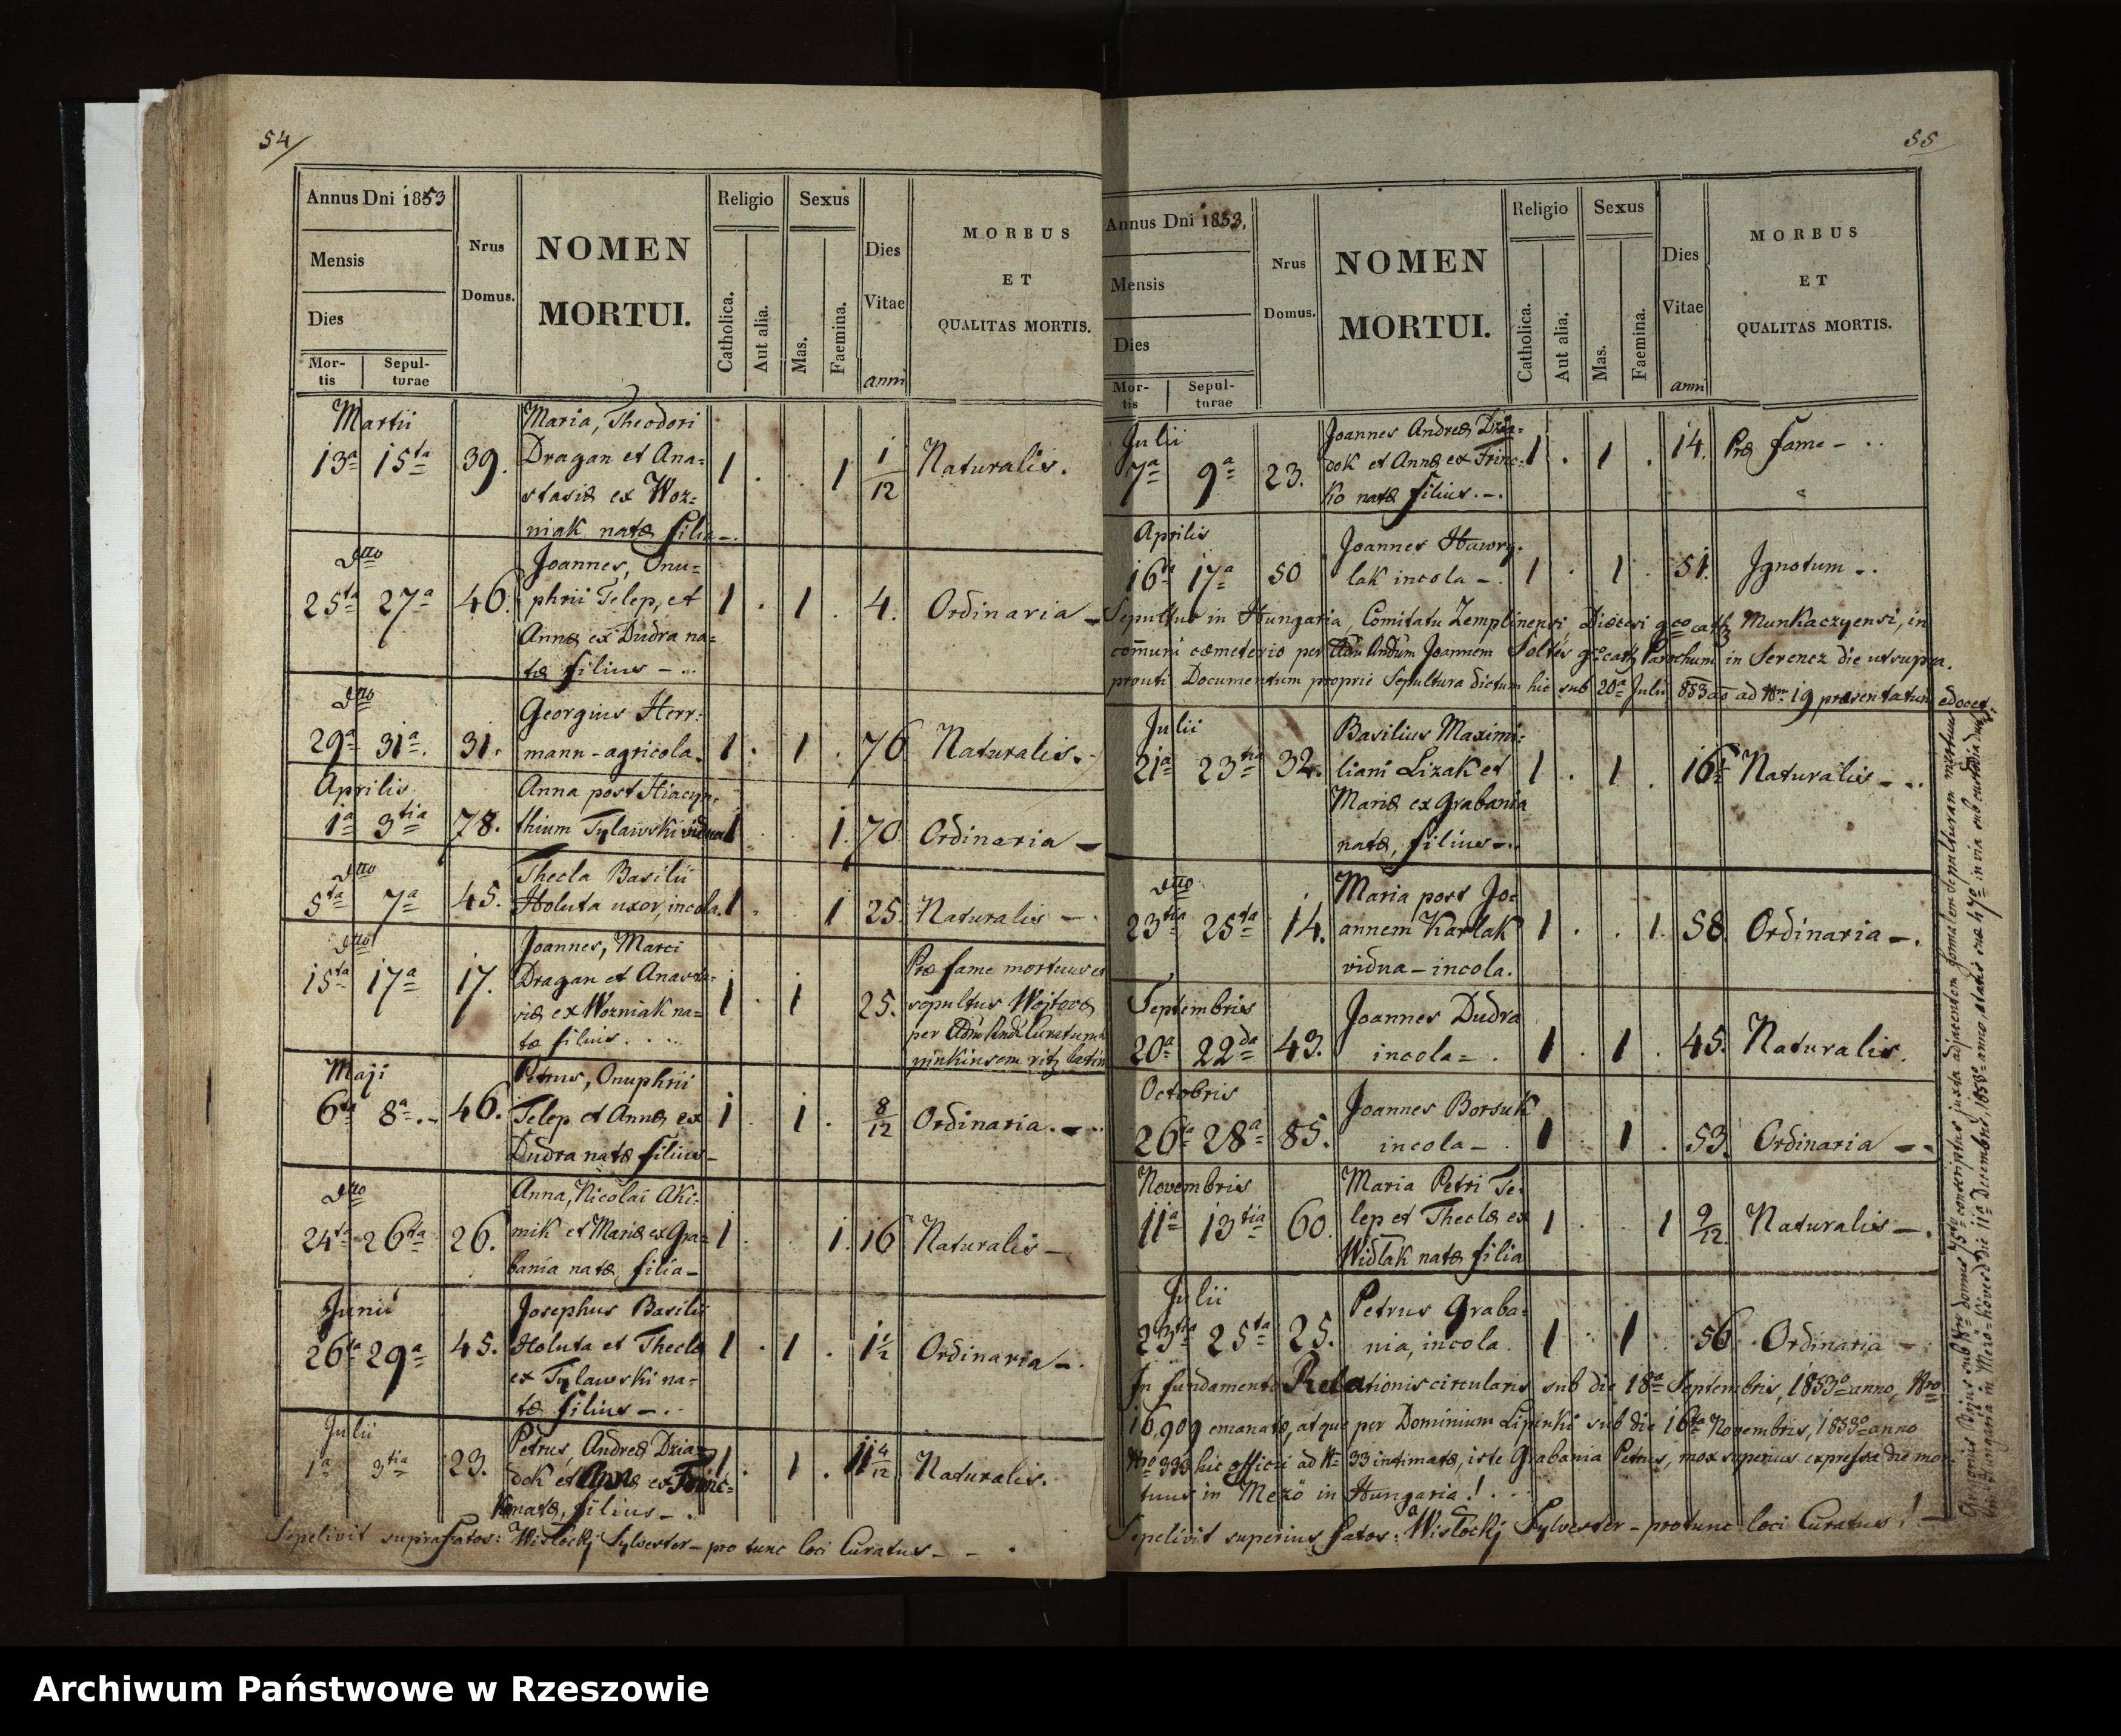 54
Annus Dni 1853
Mensis
Dies
Mor-
tis
Sepul-
turae
Nrus
Domus.
NOMEN
MORTUI.
Religio
Catholica.
Aut alia.
Sexus
Mas.
Faemina.
Dies
Vitae
anni
MORBUS
ET
QUALITAS MORTIS.
Martii
Maria, Theodori
13a 15ta 39. Dragan et Ana= 1 . . 1 1/12 Naturalis.
stasiæ ex Woz=
niak natæ filia -.
dtto
Joannes, Onu=
25ta 27a 46. phrii Telep, et 1 . 1 . 4. Ordinaria -
Annæ ex Dudra na=
tæ filius - ..
dtto
Georgius Herr=
29a 31a. 31. mann - agricola. 1 . 1 . 76 Naturalis.-
Aprilis
Anna post Hiacyn=
1a 3tia 78. thium Tylawski vidua 1 . . 1. 70. Ordinaria -
dtto
Thecla Basilii
5ta 7a 45. Holuta uxor, incola. 1 . . 1 25. Naturalis -.
dtto
Joannes, Marci
15ta 17a 17. Dragan et Anasta= 1 . 1 25.
siæ ex Wozniak na=
tæ filius. . ..
Præ fame mortuus et
sepultus Wojtovæ
per
Maji
Petrus, Onuphrii
6ta 8a.- 46. Telep et Annæ ex 1 . 1 . 8/12 Ordinaria.-.
Dudra natæ filius -
dtto
Anna, Nicolai Aki=
24ta 26ta 26. mik et Mariæ ex Gra= 1 . . 1. 16 Naturalis -
bania natæ filia -
Junii
Josephus Basilii
26ta 29a 45. Holuta et Theclæ 1 . 1 . 1½ Ordinaria -.
ex Tylawski na=
tæ filius -.
Julii
Petrus, Andreæ Dzia=
1a 3tia 23. dok et Annæ ex Trinc= 1. 1 . 11 4/12 Naturalis.
ko natæ, filius -.
Sepelivit suprafatos: Wisłockj Sylvester - pro tunc loci Curatus - - .
55
Annus Dni 1853.
Mensis
Dies
Mor-
tis
Sepul-
turae
Nrus
Domus.
NOMEN
MORTUI.
Religio
Catholica.
Aut alia.
Sexus
Mas.
Faemina.
Dies
Vitae
anni
MORBUS
ET
QUALITAS MORTIS.
Julii
Joannes Andreæ Dzia=
7a 9a 23. dok et Annæ ex Trinc= 1 . 1 . 14. Præ fame - ..
ko natæ filius.-.
Aprilis
Joannes Hawry=
16ta 17a 50 lak incola -. 1 . 1 . 51. Ignotum -.
Sepultus in Hungaria, Comitatu Zemplinensi Diœcesi gco cath Munkaczyensi, in
communi cæmeterio per Joannem Soltés gco cath Parochum in Ferencz die ut supra.
prouti Documentum proprie Sepultura dictum hic sub 20a Julii 853 ao ad Nrm 19 præsentatum edocet.
Julii
Basilius Maximi=
21a 23tia 32. liani Lizak et 1 . 1 . 16½ Naturalis - ..
Mariæ ex Grabania
natæ, filius -.
dtto
Maria post Jo=
23tia 25ta 14. annem Karlak 1 . . 1. 58. Ordinaria -.
vidua - incola.
Septembris
Joannes Dudra
20a 22da 43. incola = . 1 . 1 . 45. Naturalis.
Octobris
Joannes Borsuk
26ta 28a 85. incola - . 1 . 1 . 53. Ordinaria - .
Novembris
Maria Petri Te=
11a 13tia 60. lep et Theclæ ex 1 . . 1 9/12 Naturalis -.
Widłak natæ filia
Julii
Petrus Graba=
23tia 25ta 25. nia, incola. 1 . 1 . 56 Ordinaria -
In fundamento Relationis circularis sub die 18a Septembris, 1853o anno, Nro
16,909 emanatæ, atque per Dominium Lipinki sub die 16ta Novembris, 1853o anno
Nro 333 hic officii ad N= 33 intimatæ, iste Grabania Petrus, mox superius expressa die mor=
tuus in Mezö in Hungaria! . ..
Sepelivit superius fatos: Wisłockj Sylvester - pro tunc loci Curatus! -
sub Nro domus 75to conscriptus juxta adjacentem formalem sepulturam mortuus
in Hungaria in Mezo=Köves'd die 11a Decembris, 1853o anno, ætatis suæ 47o in via sub custodia
Archiwum Państwowe w Rzeszowie